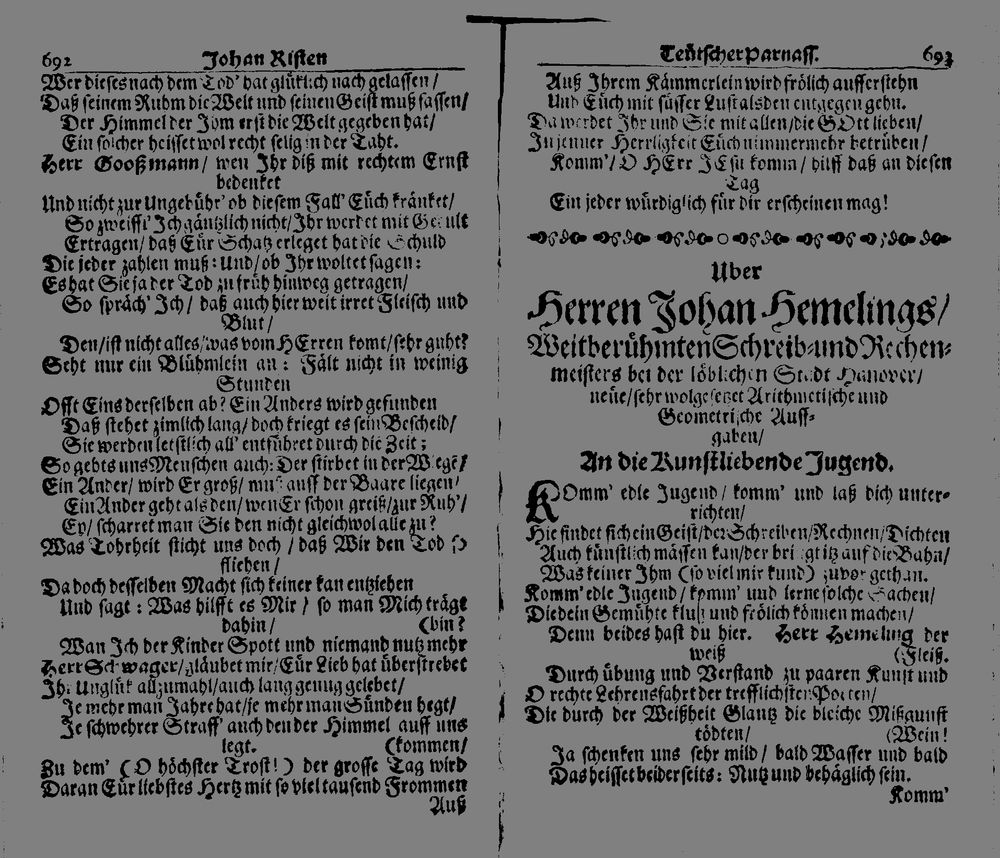 692 Johan Risten
Wer dieses nach dem Tod' hat glüklich nach gelassen /
Daß seinem Ruhm die Welt und seinen Geist muß fassen /
Der Himmel der Ihm erst die Welt gegeben hat /
Ein solcher heisset wol recht selig in der Taht.
Herr Gooßmann / wen Ihr diß mit rechtem Ernst
bedenket
Und nicht zur Ungebühr' ob diesem Fall' Eüch kränket /
So zweiffl' Ich gäntzlich nicht / Ihr werdet mit Gedult
Ertragen / daß Eür Schatz erleget hat die Schuld
Die jeder zahlen muß: Und / ob Ihr woltet sagen:
Es hat Sie ja der Tod zu früh hinweg getragen /
So spräch' Ich / daß auch hier weit irret Fleisch und
Blut /
Den / ist nicht alles / was vom HErren komt / sehr guht?
Seht nur ein Blühmlein an: Fält nicht in wenig
Stunden
Offt Eins derselben ab? Ein Anders wird gefunden
Daß stehet zimlich lang / doch kriegt es sein Bescheid /
Sie werden letstlich all' entführet durch die Zeit;
So gehts uns Menschen auch: Der stirbet in der Wiege /
Ein Ander / wird Er groß / muß auff der Baare liegen /
Ein Ander geht alsden / wen Er schon greiß / zur Ruh' /
Ey / scharret man Sie den nicht gleichwol alle zu?
Was Tohrheit sticht uns doch / daß Wir den Tod so
fliehen /
Da doch desselben Macht sich keiner kan entziehen
Und sagt: Was hilfft es Mir / so man Mich trägt
dahin / (bin?
Wan Ich der Kinder Spott und niemand nutz mehr
Herr Schwager / gläubet mir / Eür Lieb hat überstrebet
Ihr Unglük allzumahl / auch lang genug gelebet /
Je mehr man Jahre hat / je mehr man Sünden hegt /
Je schwehrer Straff' auch den der Himmel auff uns
legt. (kommen /
Zu dem' (O höchster Trost!) der grosse Tag wird
Daran Eür liebstes Hertz mit so viel tausend Frommen
Auß
Teütscher Parnass. 693
Auß Ihrem Kämmerlein wird frölich aufferstehn
Und Eüch mit süsser Lust alsden entgegen gehn.
Da werdet Ihr und Sie mit allen / die GOtt lieben /
In jenner Herrligkeit Eüch nimmermehr betrüben /
Komm' / O HErr JEsu komm / hilff daß an diesen
Tag
Ein jeder würdiglich für dir erscheinen mag!
Uber
Herren Johan Hemelings /
Weitberühmten Schreib- und Rechen-
meisters bei der löblichen Stadt Hanover /
neüe / sehr wolgesetzet Arithmetische und
Geometrische Auff-
gaben /
An die Kunstliebende Jugend.
KOmm' edle Jugend / komm' und laß dich unter-
richten /
Hie findet sich ein Geist / der Schreiben / Rechnen / Dichten
Auch künstlich mässen kan / der bringt itz auf die Bahn /
Was keiner Ihm (so viel mir kund) zuvor gethan.
Komm' edle Jugend / komm' und lerne solche Sachen /
Die dein Gemühte klug und frölich können machen /
Denn beides hast du hier. Herr Hemeling der
weiß (Fleiß.
Durch übung und Verstand zu paaren Kunst und
O rechte Lehrensfahrt der trefflichsten Poeten /
Die durch der Weißheit Glantz die bleiche Mißgunst
tödten / (Wein!
Ja schenken uns sehr mild / bald Wasser und bald
Das heisset beiderseits: Nutz und behäglich sein.
Komm'